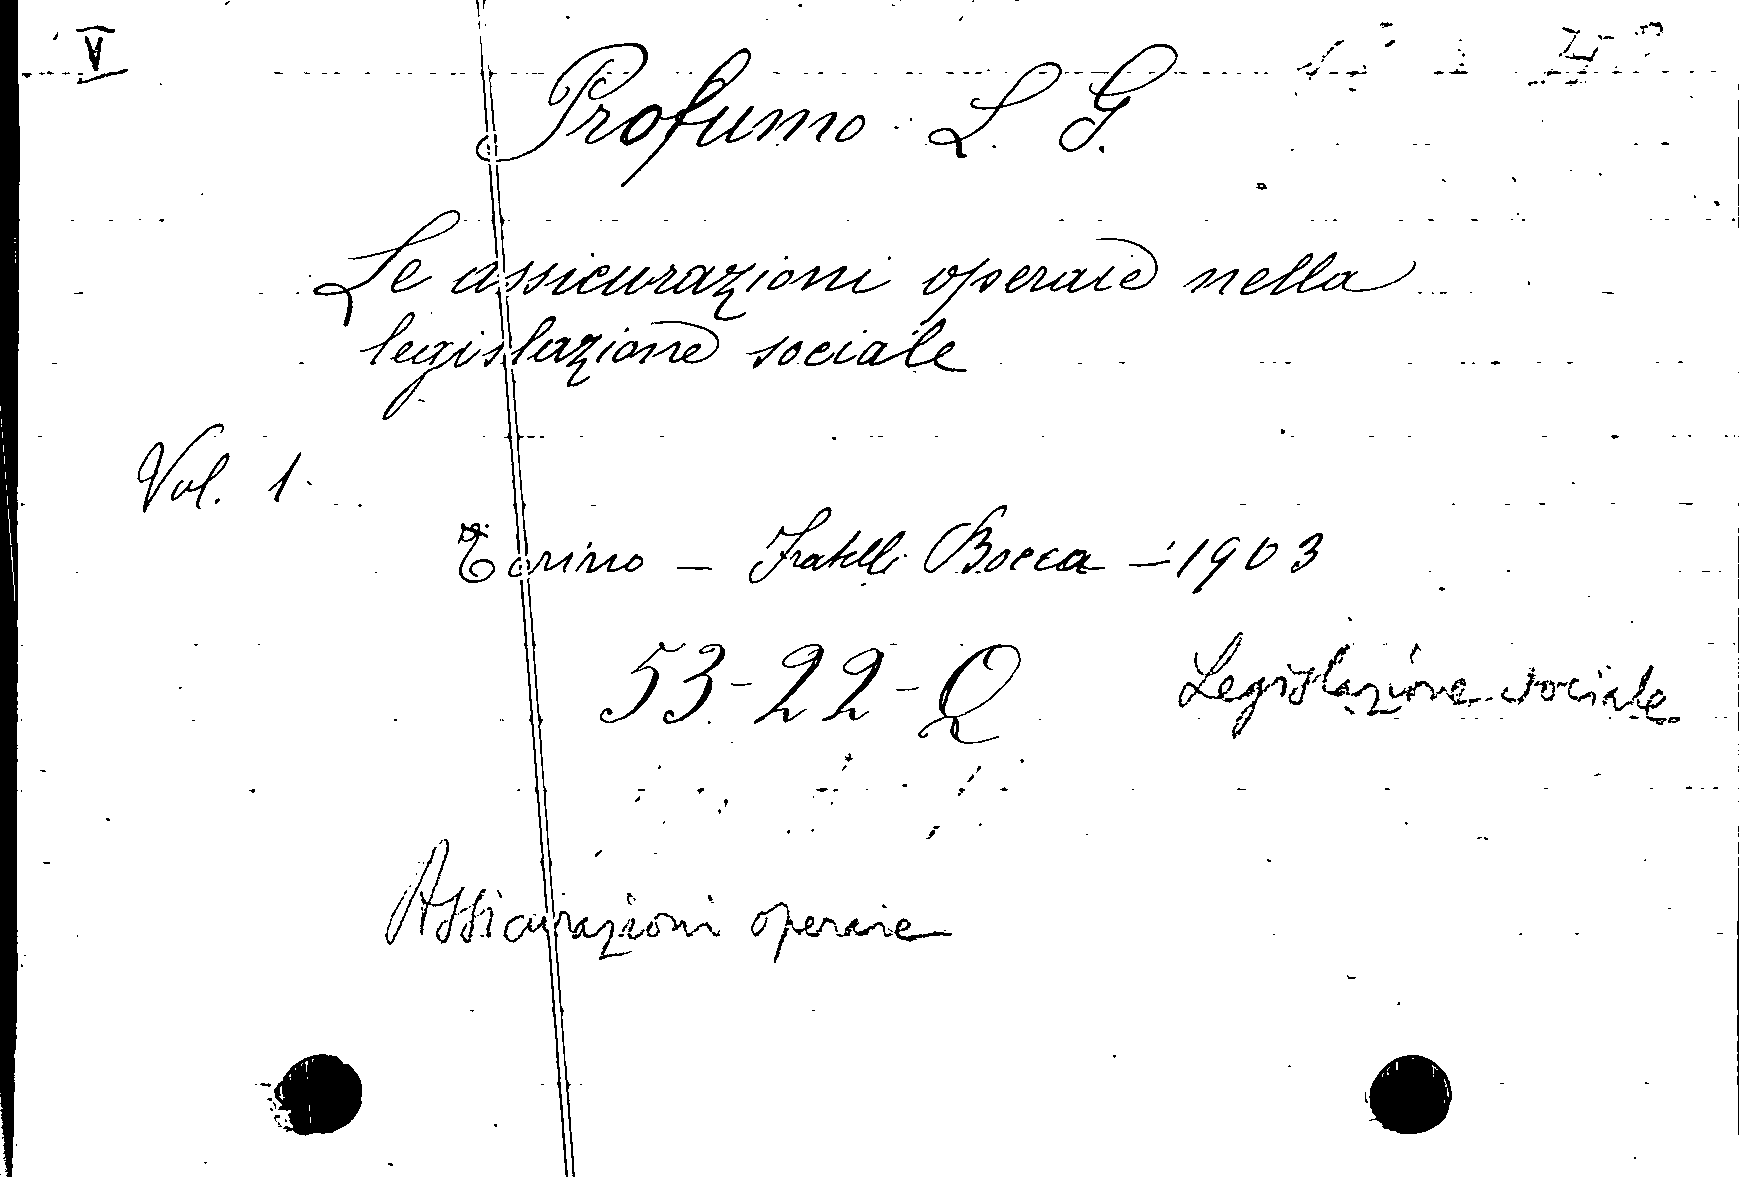 V
Profumo L. G.
Le assicurazioni operaie nella
legislazione sociale
Vol. 1.
Torino – Fratelli Bocca – 1903
53-22-Q
Legislazione sociale
Assicurazioni operaie